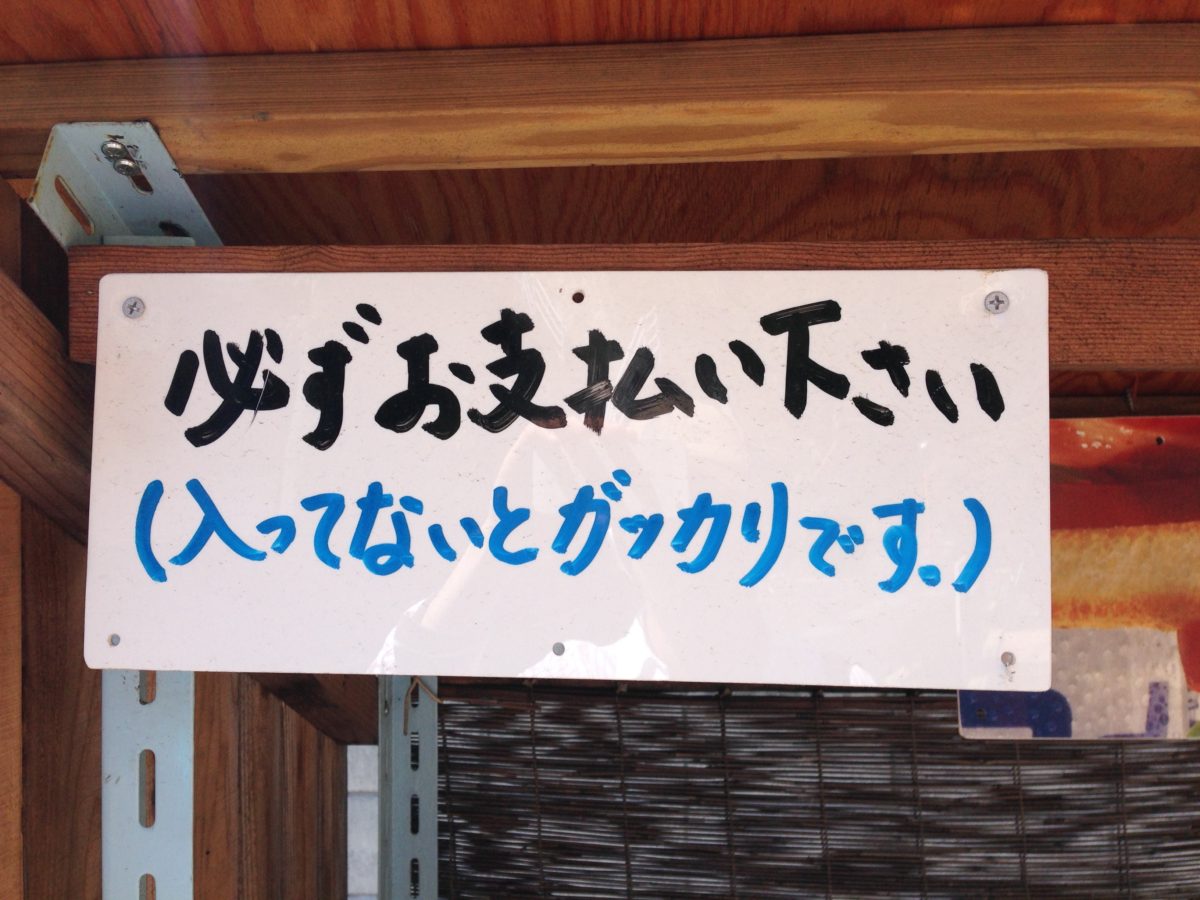 必ずお支払い下さい
(入ってないとガッカリです。)